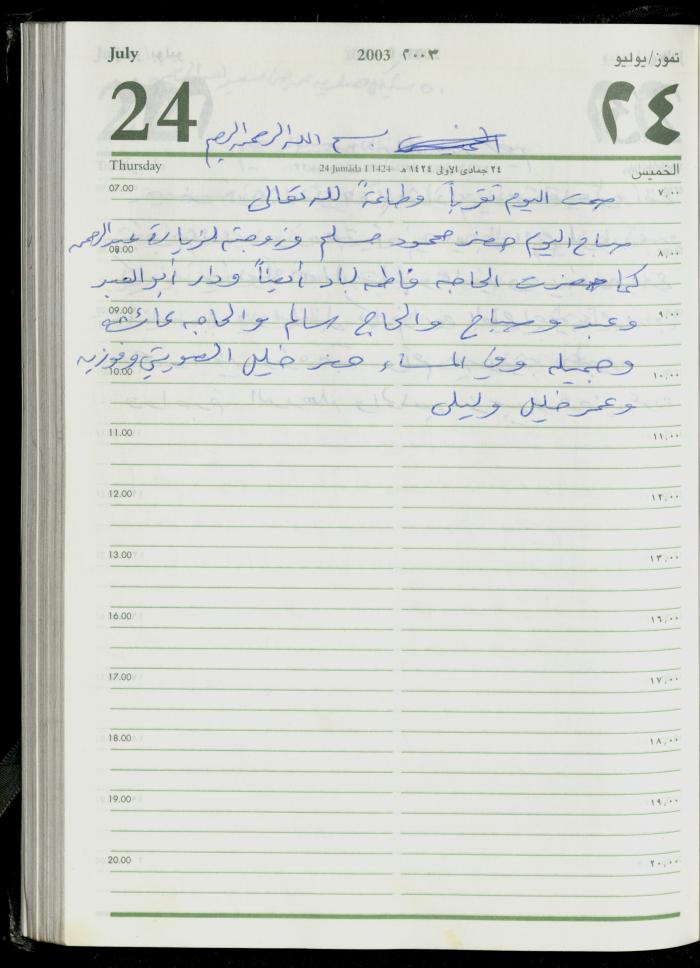 July 2003 ٢٠٠٣ تموز/يوليو
24 ٢٤
بسم الله الرحمن الرحيم
Thursday 24 Jumada I 1424 ٢٤ جمادى الأولى ١٤٢٤ هـ الخميس
07.00 ٧,٠٠
صمت اليوم تقرباً وطاعةً لله تعالى
صباح اليوم حضر محمود مسلم وزوجته لزيارة عبدالرحمن
08.00 ٨,٠٠
كما حضرت الحاجه فاطمه لباد أيضاً ودار أبو العبد
09.00 ٩,٠٠
وعبد وصباح والحاج سالم والحاجه عائشه
وجميله وفي المساء حضر خليل الصويتي وفوزيه
10.00 ١٠,٠٠
وعمر خليل وليلى
11.00 ١١,٠٠
12.00 ١٢,٠٠
13.00 ١٣,٠٠
16.00 ١٦,٠٠
17.00 ١٧,٠٠
18.00 ١٨,٠٠
19.00 ١٩,٠٠
20.00 ٢٠,٠٠